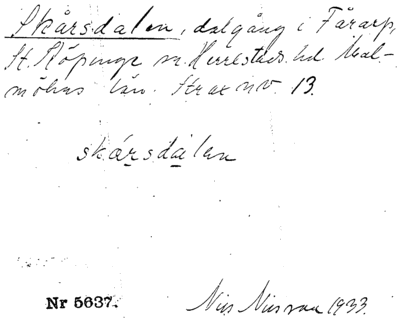 Skårsdalen, dalgång i Fårarp,
St. Köpinge sn. Herrestads hd. Mal-
möhus län. Strax nv. 13.
skársdalen
Nr 5637.
Nils Nilsson 1933.